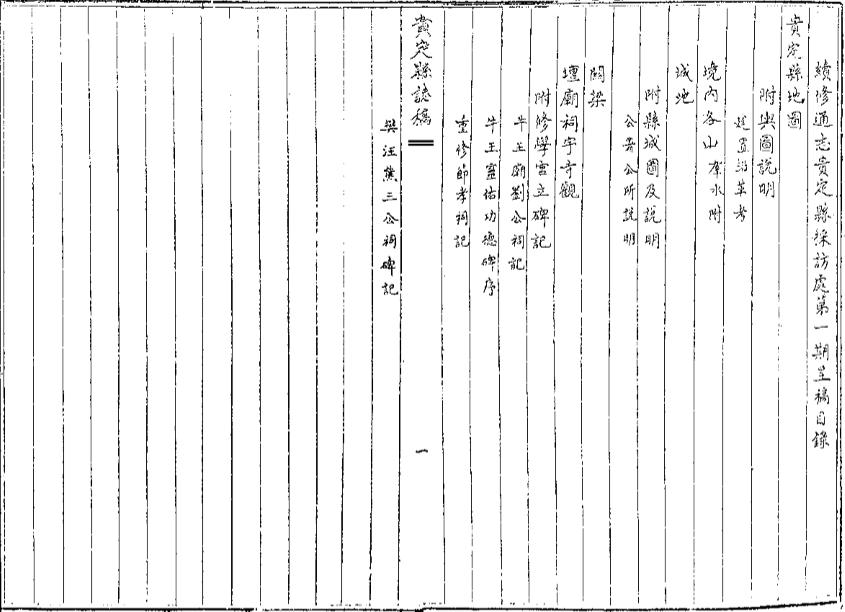 續修通志貴定縣採訪處第一期呈稿目錄
貴定縣地圖
附輿圖説明
建置沿革考
境内各山 羣水附
城池
附縣城圖及説明
公署公所説明
關梁
壇廟祠宇寺觀
附修學宮立碑記
牛王廟劉公祠記
牛王靈佑功德碑序
重修節孝祠記
貴定縣誌稿
一
吳汪黨三公祠碑記